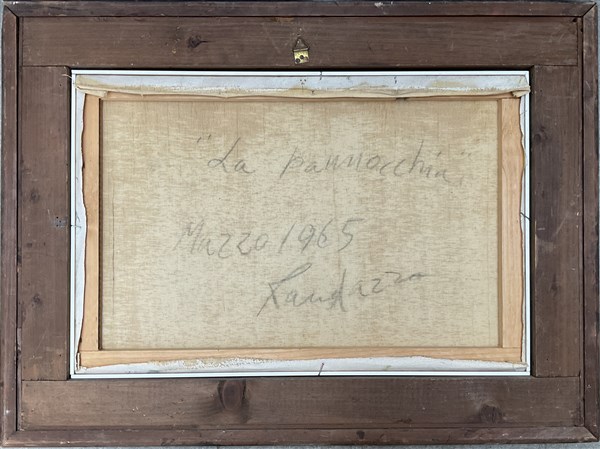 "La pannocchia"
Mazzo 1965
Randazzo